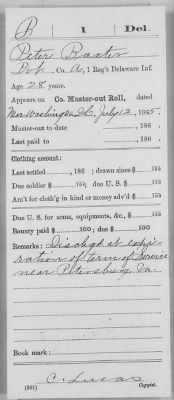 B | 1 | Del.
Peter Baxter
Pvt., Co. A, 1 Reg't Delaware Inf.
Age 28 years.
Appears on Co. Muster-out Roll, dated
Near Washington D.C., July 12, 1865.
Muster-out to date , 186 .
Last paid to , 186 .
Clothing account:
Last settled , 186 ; drawn since $ 100
Due soldier $ 100; due U. S. $ 100
Am't for cloth'g in kind or money adv'd $ 100
Due U. S. for arms, equipments, &c., $ 100
Bounty paid $ 100; due $ 100
Remarks: Dischgd at expi-
ration of term of service
near Petersburg Va.
Book mark:
C. Lucas
(361) Copyist.